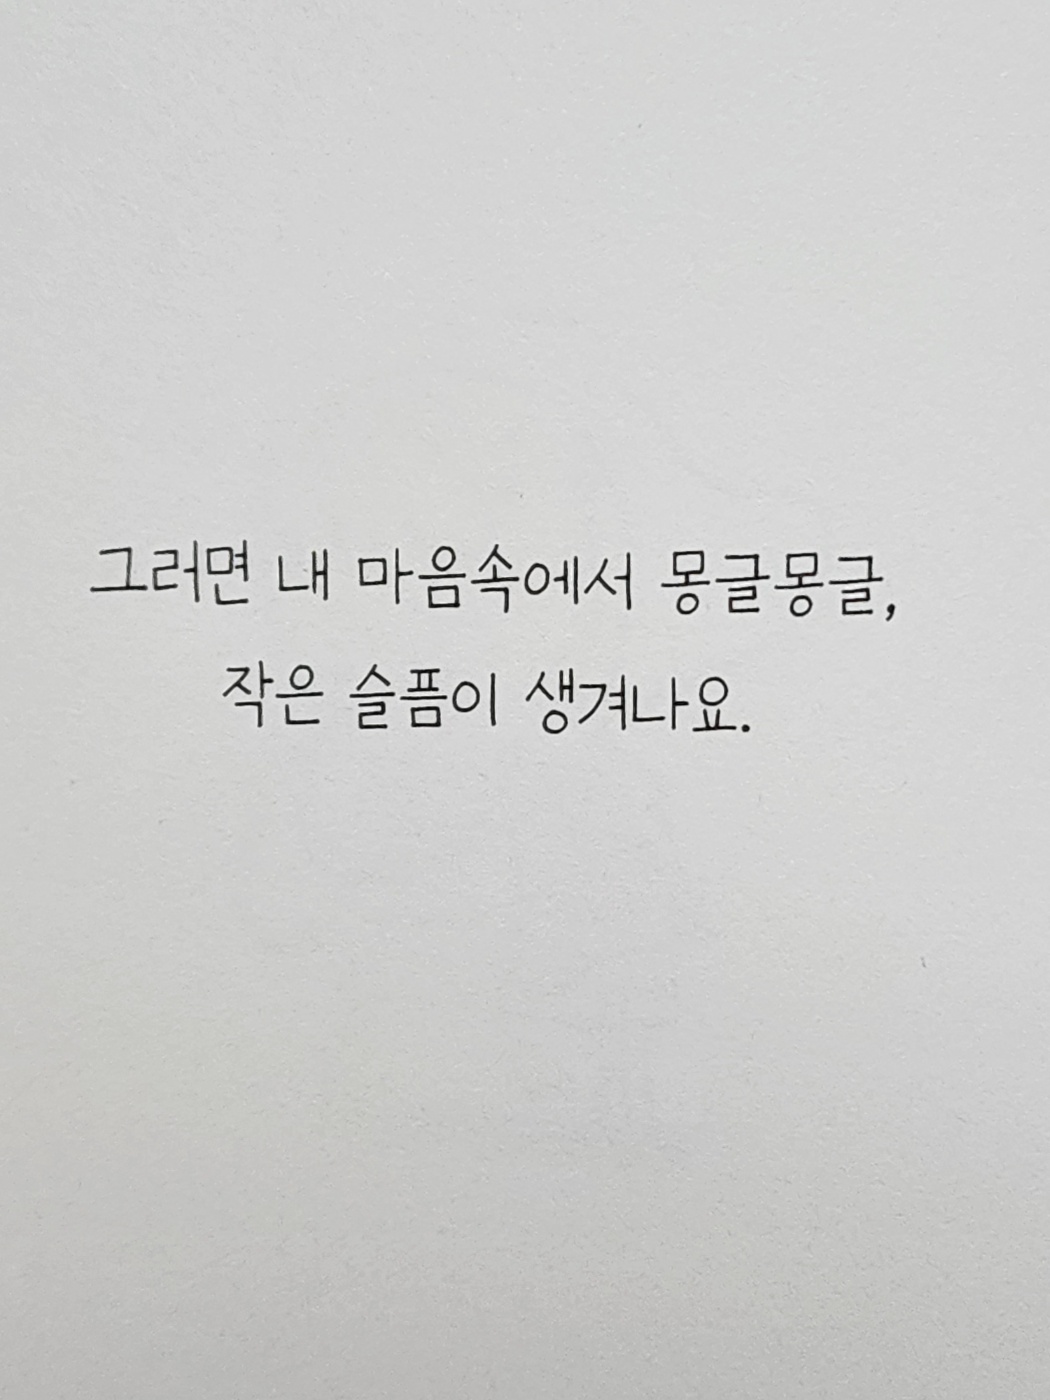 그러면 내 마음속에서 몽글몽글,
작은 슬픔이 생겨나요.